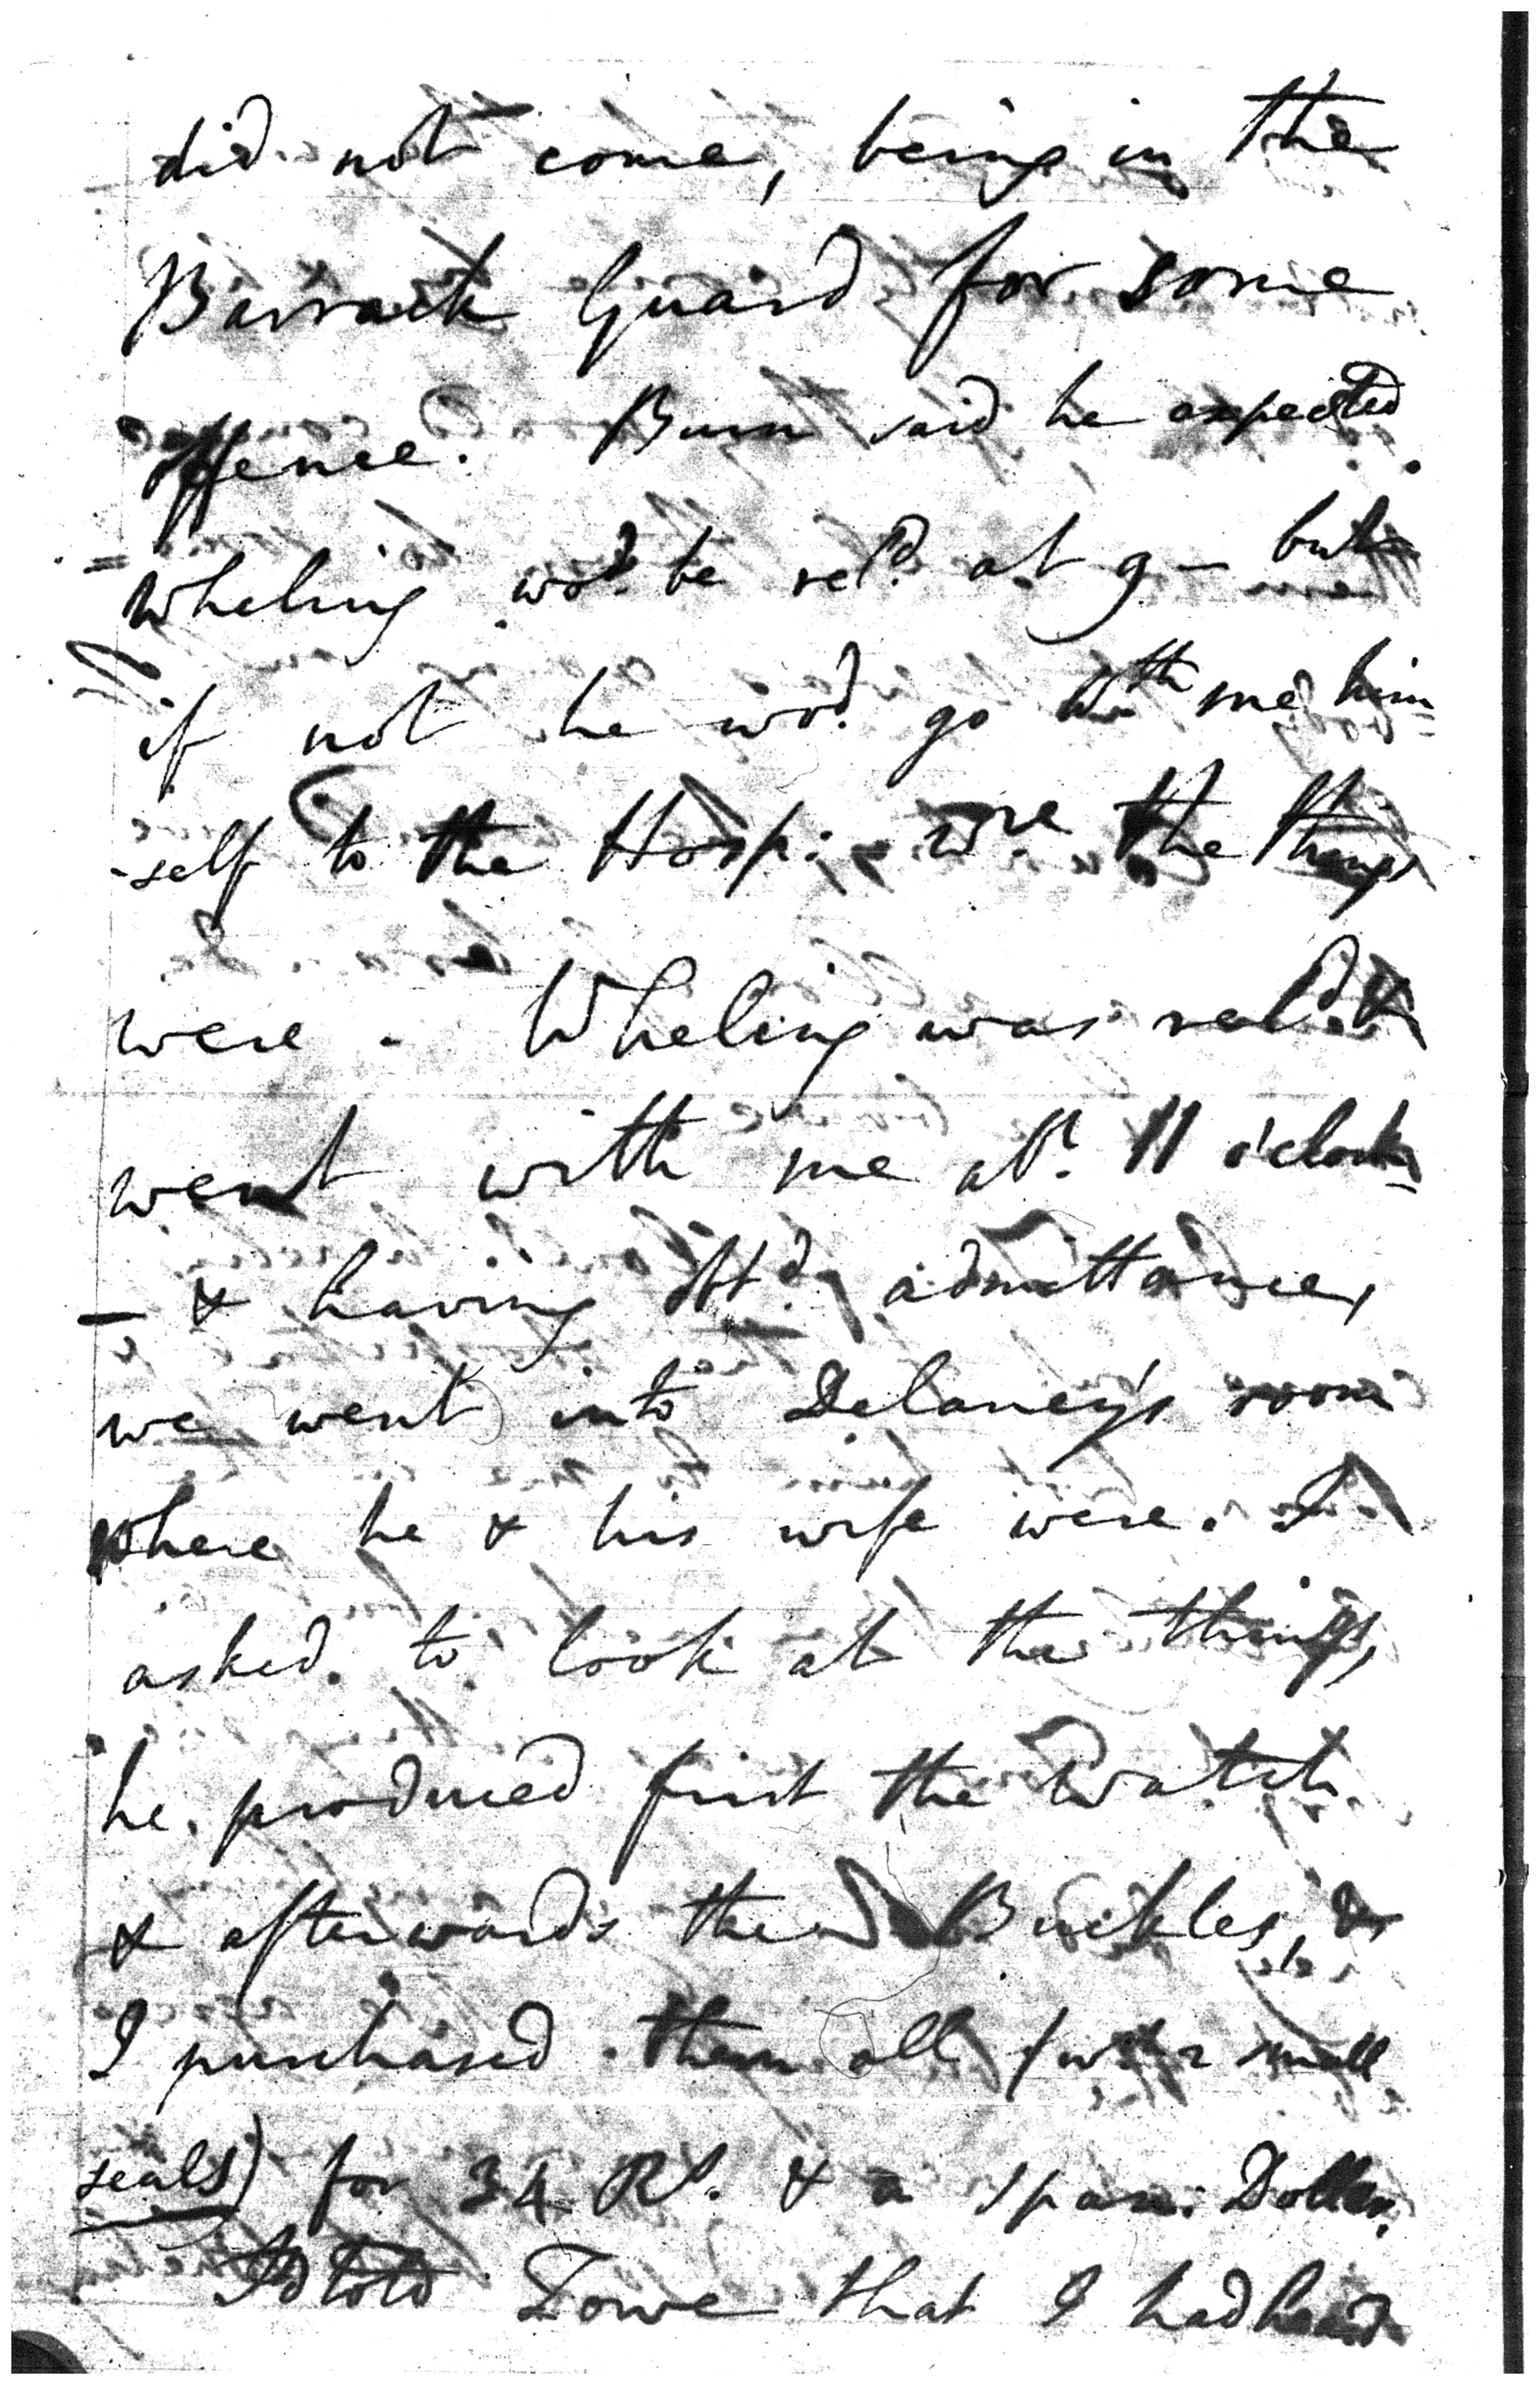 did not come, being in the
Barrack Guard for some
offence. Burn said he expected
Wheling wod. be reld. at 9 — but
if not he wod. go wth me him-
-self to the Hosp: wre the things
were - Wheling was reld. &
went with me abt. 11 o'clock
— & having obtd. admittance,
we went into Delaney's room
where he & his wife were. I
asked to look at the things,
he produced first the Watch
& afterwards the Buckles, &
I purchased them all (wth 2 small
seals) for 34 Rs. & a Span: Dollar.
I told Towe that I had heard